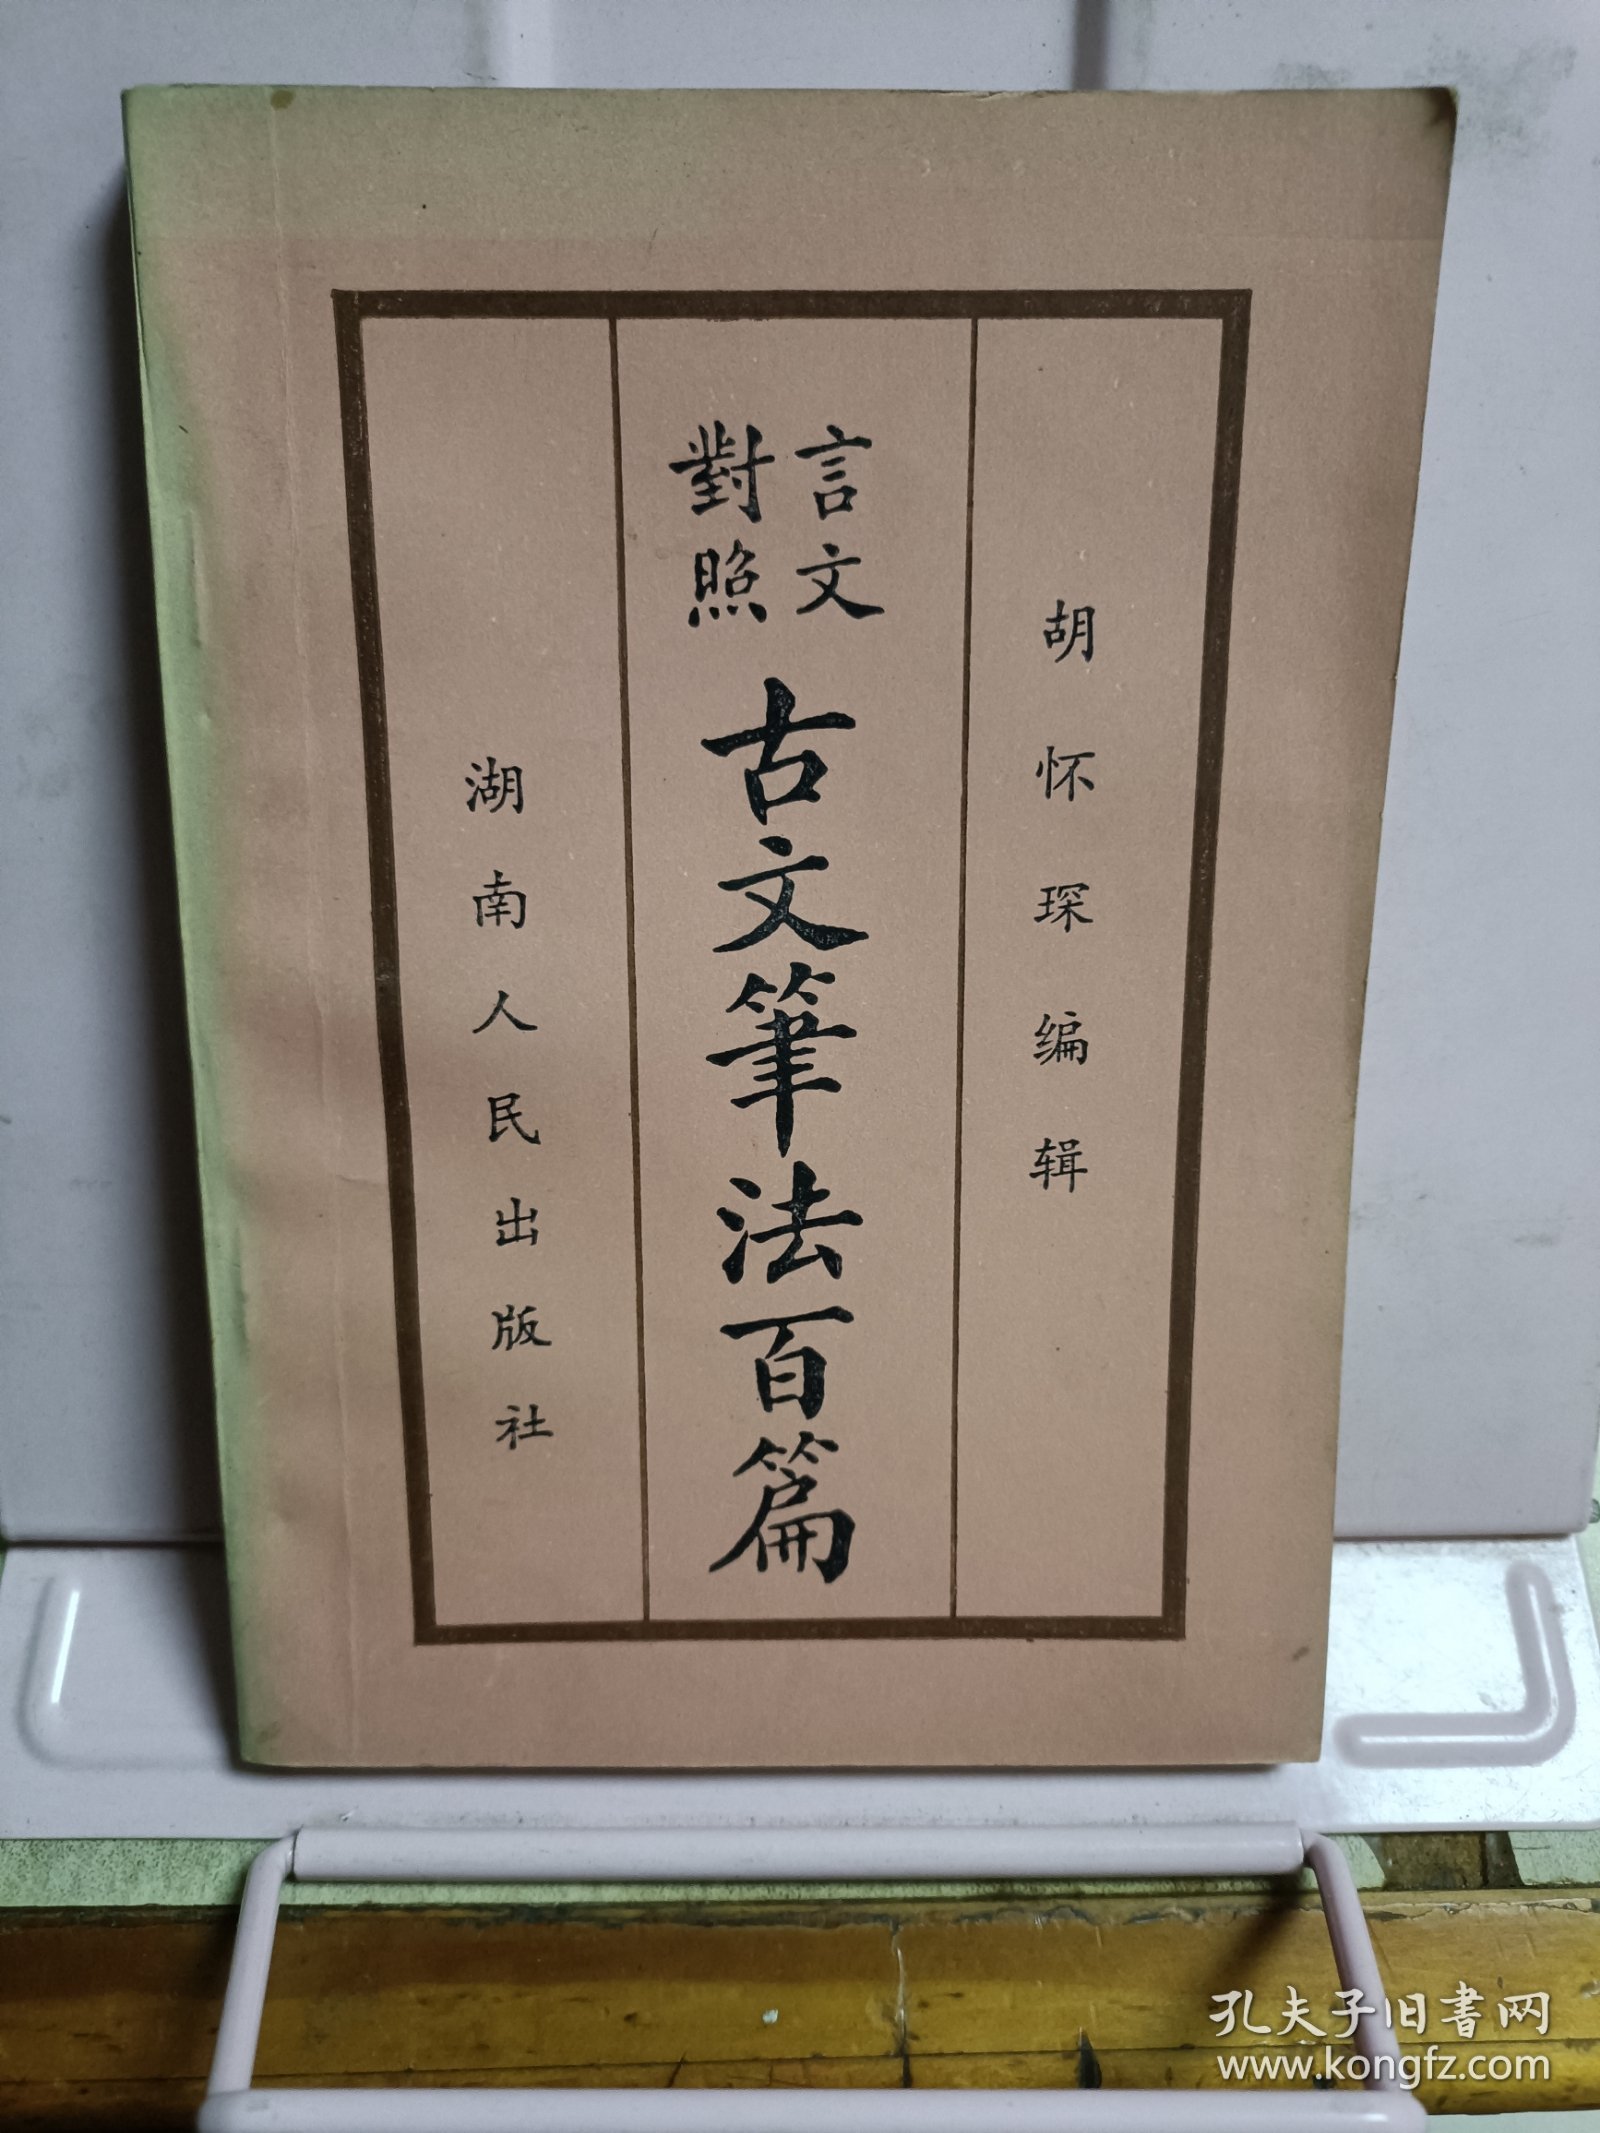 胡怀琛编辑
言文
對照
古文筆法百篇
湖南人民出版社
孔夫子旧書网
www.kongfz.com